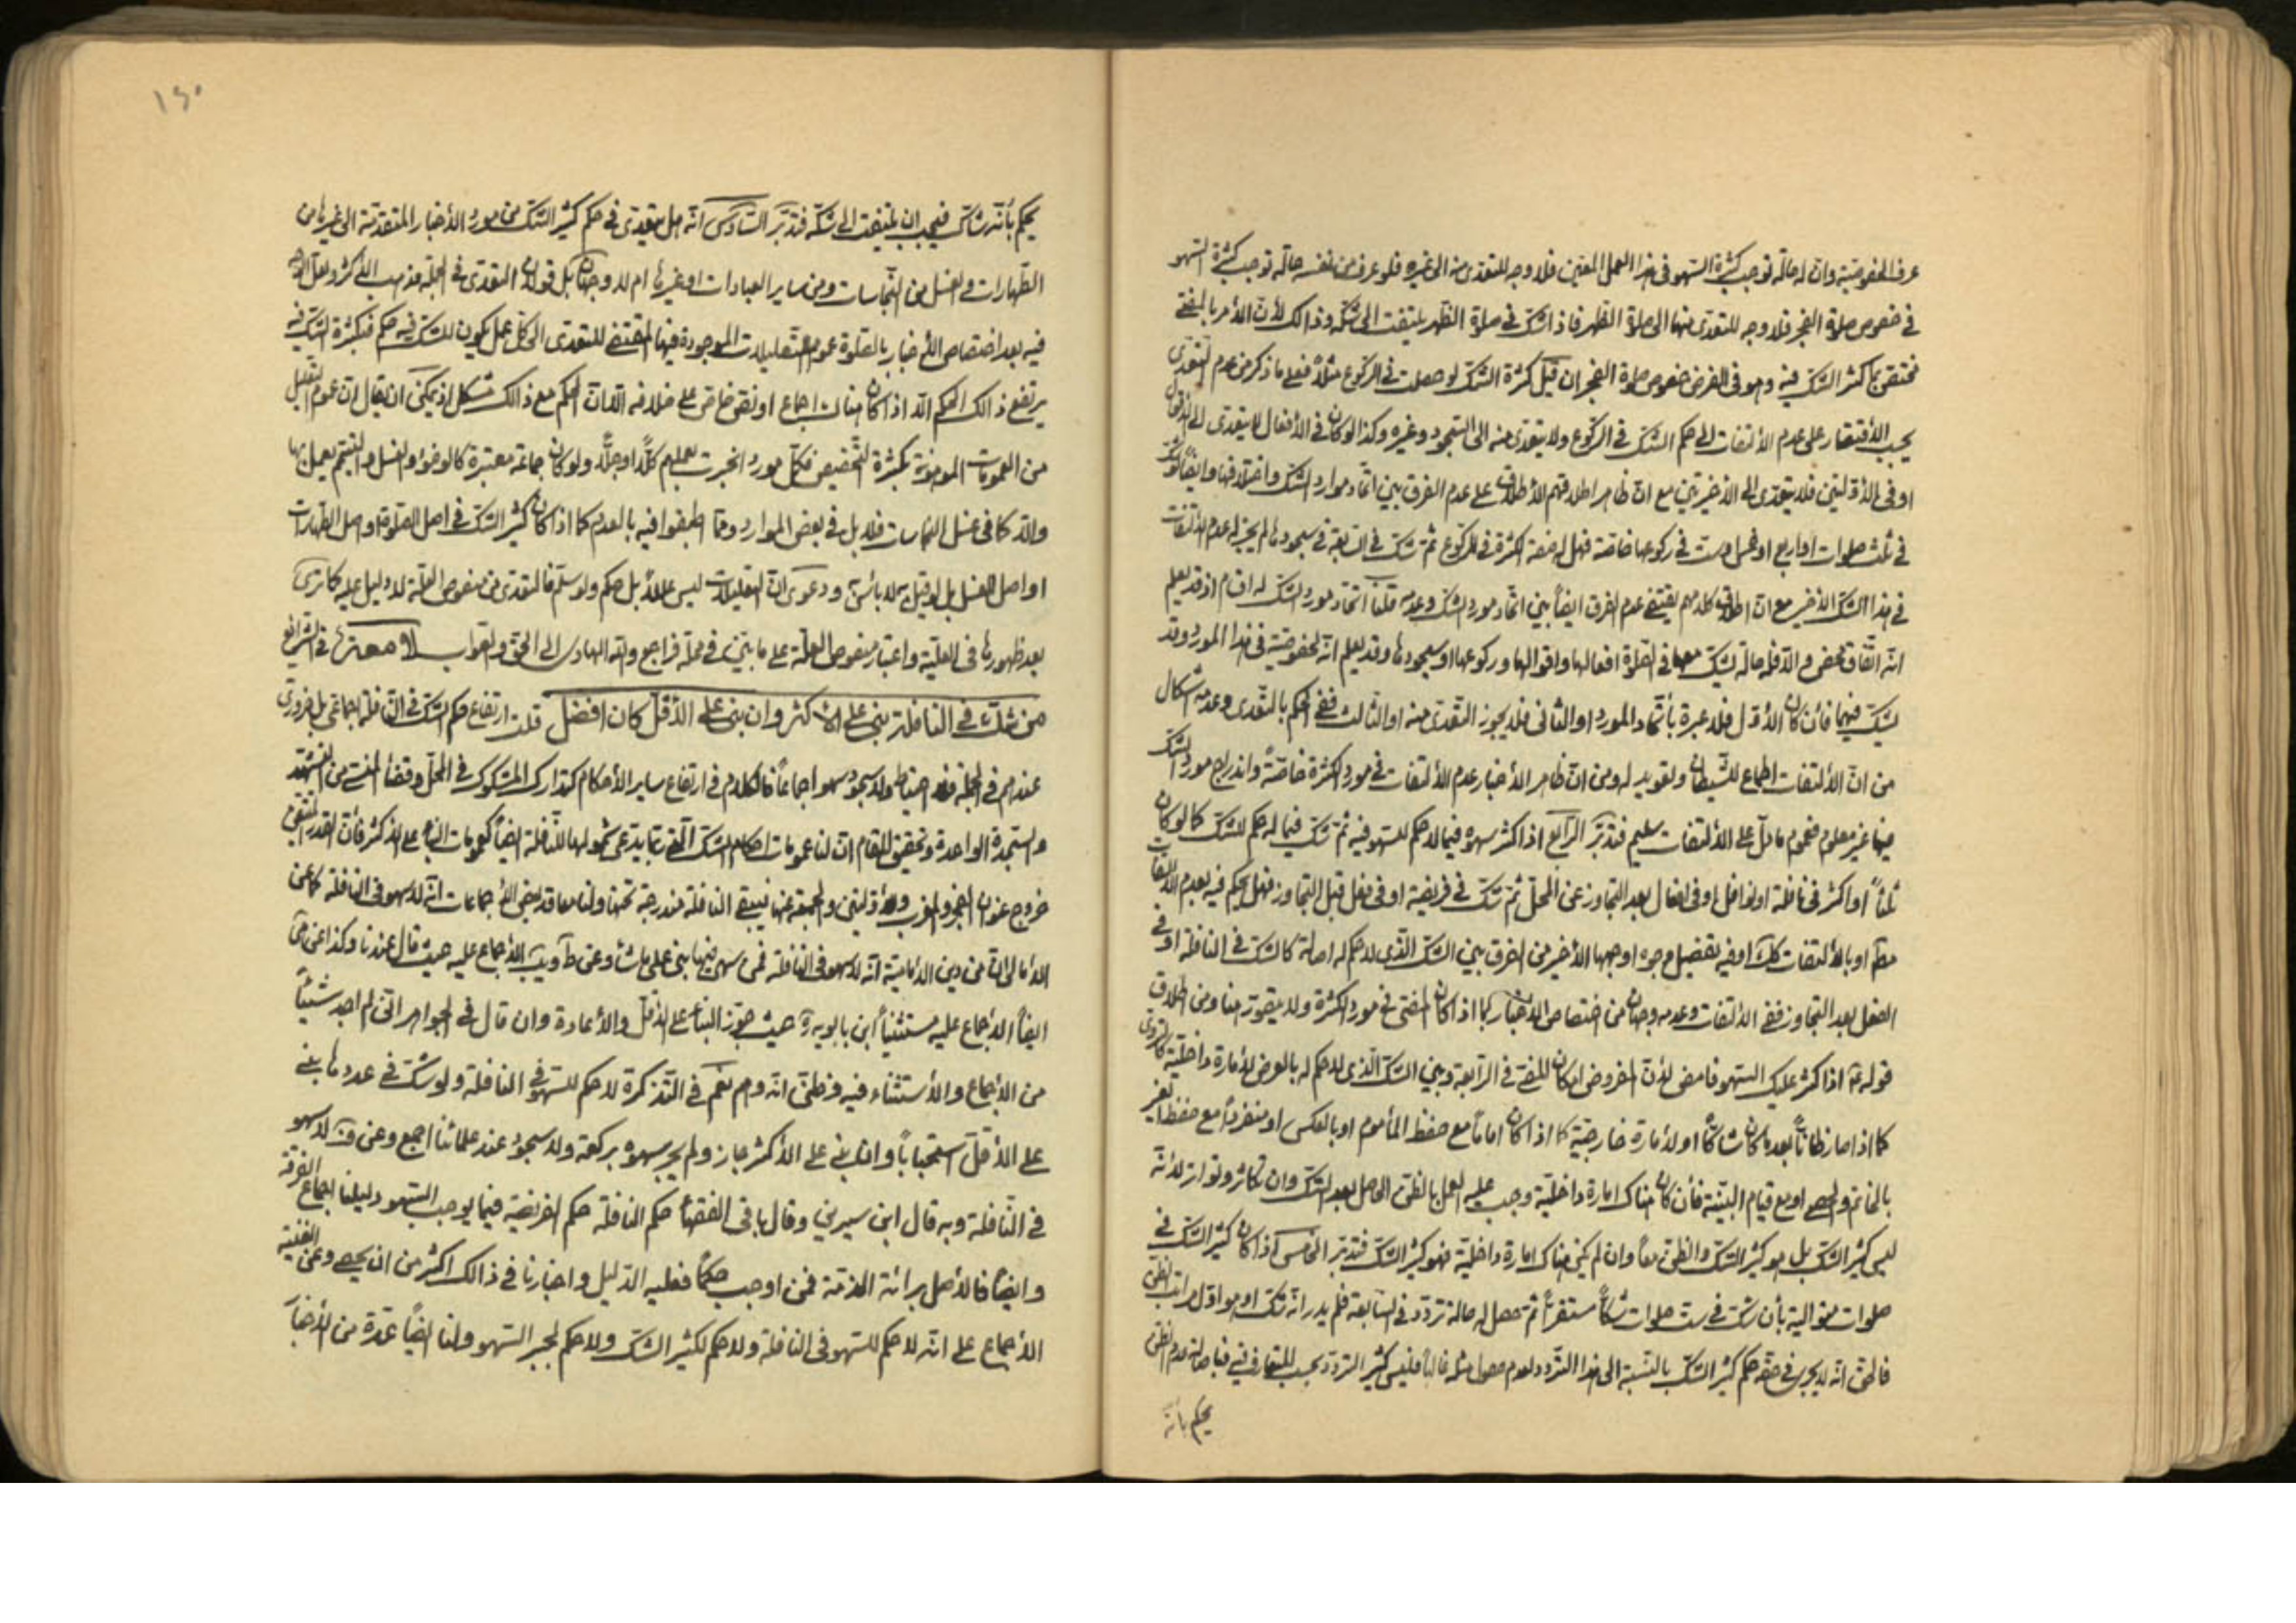 عرف الخصوصية وان له حالة توجب كثرة السهو في هذا العمل المعين فلا وجه للتعدى منه الى غيره فلو عرف من نفسه حالة توجب كثرة السهو
في خصوص صلوة الفجر فلا وجه للتعدى منها الى صلوة الظهر فاذا شك في صلوة الظهر يلتفت الى شكه وذالك لأن الأمر بالمضى
مختص بما كثر الشك فيه وهو في الفرض خصوص صلوة الفجر ان قيل كثرة الشك لو حصلت في الركوع مثلاً فعلى ما ذكر من عدم التعدى
يجب الأقتصار على عدم الألتفات الى حكم الشك في الركوع ولا يتعدى منه الى السجود وغيره وكذا لو كان في الأفعال لا يتعدى الى
او في الأولتين فلا يتعدى الى الأخيرتين مع ان ظاهر اطلاقهم الأطلاق على عدم الفرق بين اتحاد موارد الشك واختلافها وايضاً لو شك
في ثلث صلوات او اربع او خمس او ست في ركوعها خاصة فهل له صفة الكثرة في الركوع ثم شك في السابعة في سجودها لم يجز له عدم الألتفات
في هذا الشك الأخير مع ان اطلاق كلامهم يقتضى عدم الفرق ايضاً بين اتحاد مورد الشك وعدمه قلنا اتحاد مورد الشك له اقسام اذ قد يعلم
انه اتفاق محض والا فله حالة يشك معها في الصلوة افعالها واقوالها وركوعها او سجودها وقد يعلم انه لخصوصية في هذا المورد وقد
يشك فيهما فأن كان الأول فلا عبرة بأتحاد المورد او الثاني فلا يجوز التعدى منه او الثالث ففى الحكم بالتعدى وعدمه اشكال
من ان الألتفات اطماع للشيطان وتعويد له ومن ان ظاهر الأخبار عدم الألتفات في مورد الكثرة خاصة واندراج مورد الشك
فيها غير معلوم فعموم ما دل على الألتفات سليم فتدبر الرابع اذا كثر سهوه فيما لا حكم للسهو فيه ثم شك فيما له حكم للشك كما لو كان
ثلثاً او اكثر في نافلة او نوافل او في افعال بعد التجاوز عن المحل ثم شك في فريضة او في فعل قبل التجاوز فهل يحكم فيه بعدم الألتفات
مطَ او بالألتفات كلَ او فيه تفصيل وجوه اوجهها الأخير من الفرق بين الشك الذى لا حكم له اصالة كالشك في النافلة او في
الفعل بعد التجاوز ففى الألتفات وعدمه وجهان من اختصاص الأخبار بما اذا كان المضى في مورد الكثرة ولا يتصور هنا ومن اطلاق
قوله ع اذا كثر عليك السهو فامض لأن المفروض امكان المضى في الرابعة وبين الشك الذى لا حكم له بالعرض لأمارة داخلية كالتروى
كما اذا صار ظاناً بعد ما كان شاكاً او لأمارة خارجية كما اذا كان اماماً مع حفظ المأموم او بالعكس او منفرداً مع حفظ الغير
بالخاتم والحصى او مع قيام البينة فأن كان هناك امارة داخلية وجب عليه العمل بالظن الحاصل بعد الشك وان تكاثر وتواتر لأنه
ليس كثير الشك بل هو كثير الشك والظن معاً وان لم يكن هناك امارة داخلية فهو كثير الشك فتدبر الخامس اذا كان كثير الشك في
صلوات متوالية بأن شك في ست صلوات شكاً مستقراً ثم حصل له حالة تردد في السابعة فلم يدر انه شك او هو اول مراتب الظن
فالحق انه لا يجرى في حقه حكم كثير الشك بالنسبة الى هذا التردد لعدم حصول مثله غالباً فليس كثير التردد بحسب المتعارف فبأصالة عدم الظن
يحكم بأنه
١٥٠
يحكم بأنه شاك فيجب ان يلتفت الى شكه فتدبر السادس انه هل يتعدى في حكم كثير الشك من مورد الأخبار المتقدمة الى غيرها من
الطهارات والغسل من النجاسات ومن ساير العبادات او غيرها ام لا وجهان بل قولان التعدى في الجملة مذهب الأكثر ولعل الوجه
فيه بعد اختصاص الأخبار بالصلوة عموم التعليلات الموجودة فيها المقتضى للتعدى الى كل عمل يكون للشك فيه حكم فبكثرة الشك فيه
يرتفع ذالك الحكم الا اذا كان هناك اجماع او نص خاص على خلافه الا ان الحكم مع ذالك مشكل اذ يمكن ان يقال ان عموم التعليل
من العمومات الموهونة بكثرة التخصيص فكل مورد انجبرت بعملهم كلاً او جلاً ولو كان جماعة معتبرة كالوضوء والغسل والتيمم يعمل بها
والا كما في غسل النجاسات فلا بل في بعض الموارد ومما اطبقوا فيه بالعدم كما اذا كان كثير الشك في اصل الصلوة او اصل الطهارات
او اصل الغسل بل لو قيل به لا بأس به ودعوى ان التعليلات ليس عللاً بل حكم ولو سلم فالتعدى من منصوص العلة لا دليل عليه كما ترى
بعد ظهورها في العلية واعتبار منصوص العلة على ما بين في محله فراجع والله الهادى الى الحق والصواب في الشرايع
من شك في النافلة بنى على الأكثر وان بنى على الأقل كان افضل قلت ارتفاع حكم الشك في النافلة اجماعى بل ضرورى
عندهم في الجملة فلا احتياط ولا سجود سهو اجماعاً فالكلام في ارتفاع ساير الأحكام كتدارك المشكوك في المحل وقضاء المنسى من التشهد
والسجدة الواحدة وتحقيق المقام ان لنا عمومات احكام الشك التي ربما يدعى شمولها للنافلة ايضاً كعمومات البناء على الأكثر فأن القدر المتيقن
خروج عنوان الفجر والمغرب والأولتين والجمعة عنها فيبقى النافلة مندرجة تحتها ولنا معاقد بعض الأجماعات انه لا سهو في النافلة كما عن
الأمالى ان من دين الأمامية انه لا سهو في النافلة فمن سهى فيها بنى على ما شاء وعن الأجماع عليه حيث قال عندنا وكذا عن
ايضاً الأجماع عليه مستثنياً ابن بابويه ره حيث جوز البناء على الأقل والأعادة وان قال في الجواهر انى لم اجد شيئاً
من الأجماع والأستثناء فيه وظنى انه وهم نعم في التذكرة لا حكم للسهو في النافلة ولو شك في عددها بنى
على الأقل استحباباً وان بنى على الأكثر جاز ولم يجبر سهوه بركعة ولا سجود عند علمائنا اجمع وعن ف لا سهو
في النافلة وبه قال ابن سيرين وقال باقى الفقهاء حكم النافلة حكم الفريضة فيما يوجب السهو دليلنا اجماع الفرقة
وايضاً فالأصل برائة الذمة فمن اوجب حكماً فعليه الدليل واخبارنا في ذالك اكثر من ان يحصى وعن الغنية
الأجماع على انه لا حكم للسهو في النافلة ولا حكم لكثير الشك ولا حكم لجبر السهو ولنا ايضاً عدة من الأخبار